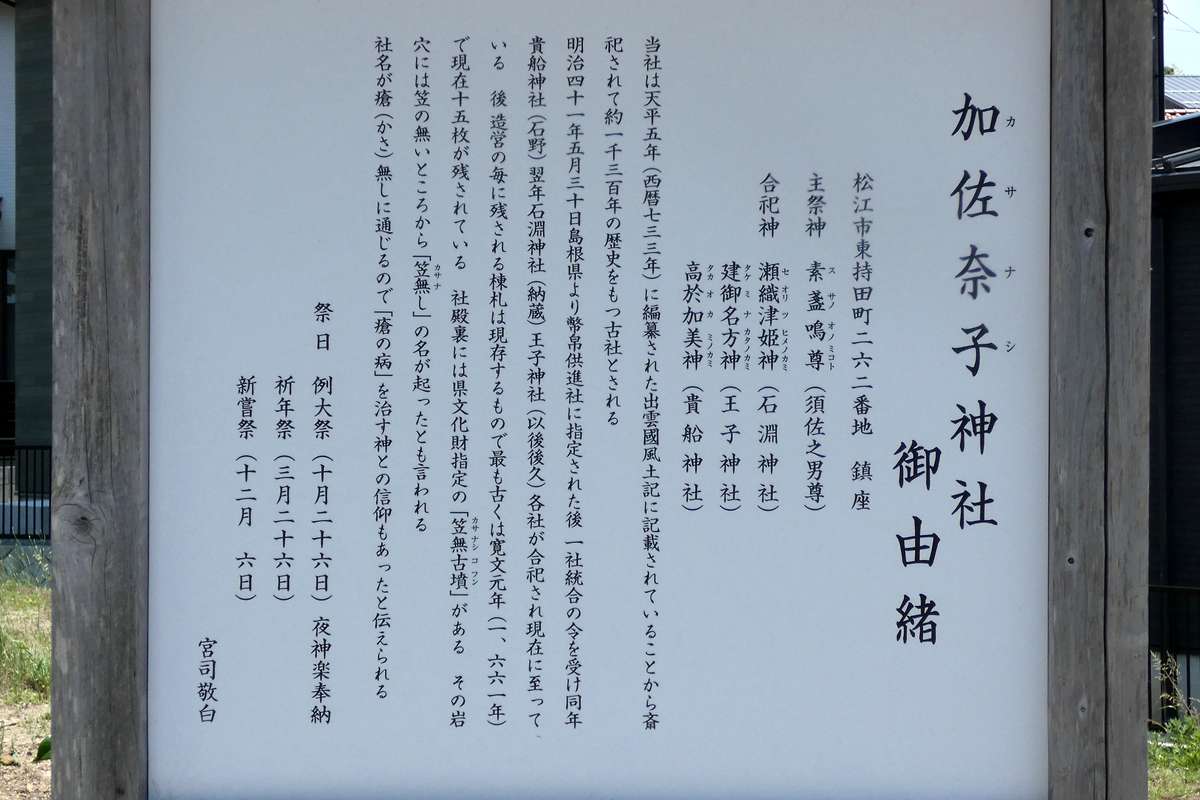 加佐奈子神社
カサナシ
御由緒
松江市東持田町二六二番地　鎮座
主祭神　素盞嗚尊（須佐之男尊）
スサノオノミコト
合祀神　瀬織津姫神（石淵神社）
セオリツヒメノカミ
建御名方神（王子神社）
タケミナカタノカミ
高於加美神（貴船神社）
タカオカミノカミ
当社は天平五年（西暦七三三年）に編纂された出雲國風土記に記載されていることから斎
祀されて約一千三百年の歴史をもつ古社とされる
明治四十一年五月三十日島根県より幣帛供進社に指定された後 一社統合の令を受け同年
貴船神社（石野）翌年石淵神社（納蔵）王子神社（以後後久）各社が合祀され現在に至って、
いる　後 造営の毎に残される棟札は現存するもので最も古くは寛文元年（一、六六一年）
で現在十五枚が残されている　社殿裏には県文化財指定の「笠無古墳」がある　その岩
カサナシコフン
穴には笠の無いところから「笠無し」の名が起ったとも言われる
カサナ
社名が瘡（かさ）無しに通じるので「瘡の病」を治す神との信仰もあったと伝えられる
祭日　例大祭（十月二十六日）夜神楽奉納
祈年祭（三月二十六日）
新嘗祭（十二月　六日）
宮司敬白